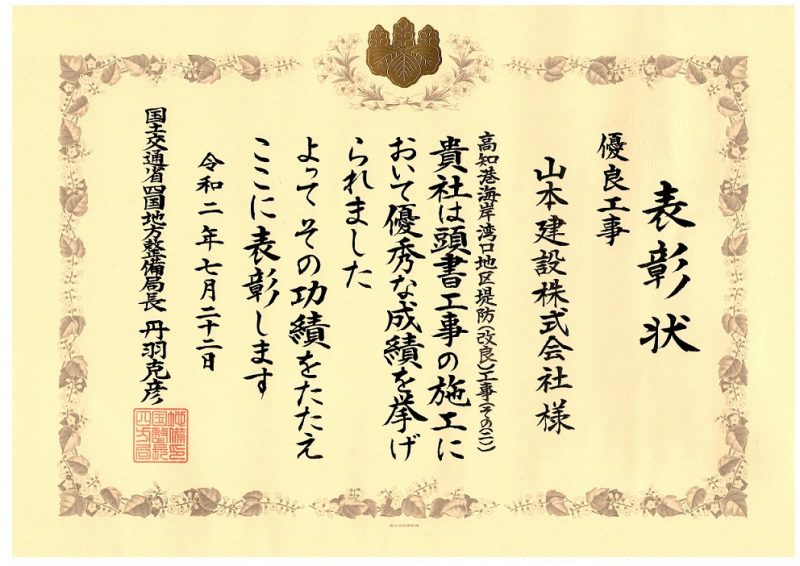 表彰状
優良工事
山本建設株式会社様
高知港海岸湾口地区堤防(改良)工事(その二)
貴社は頭書工事の施工に
おいて優秀な成績を挙げ
られました
よってその功績をたたえ
ここに表彰します
令和二年七月二十二日
国土交通省四国地方整備局長 丹羽克彦